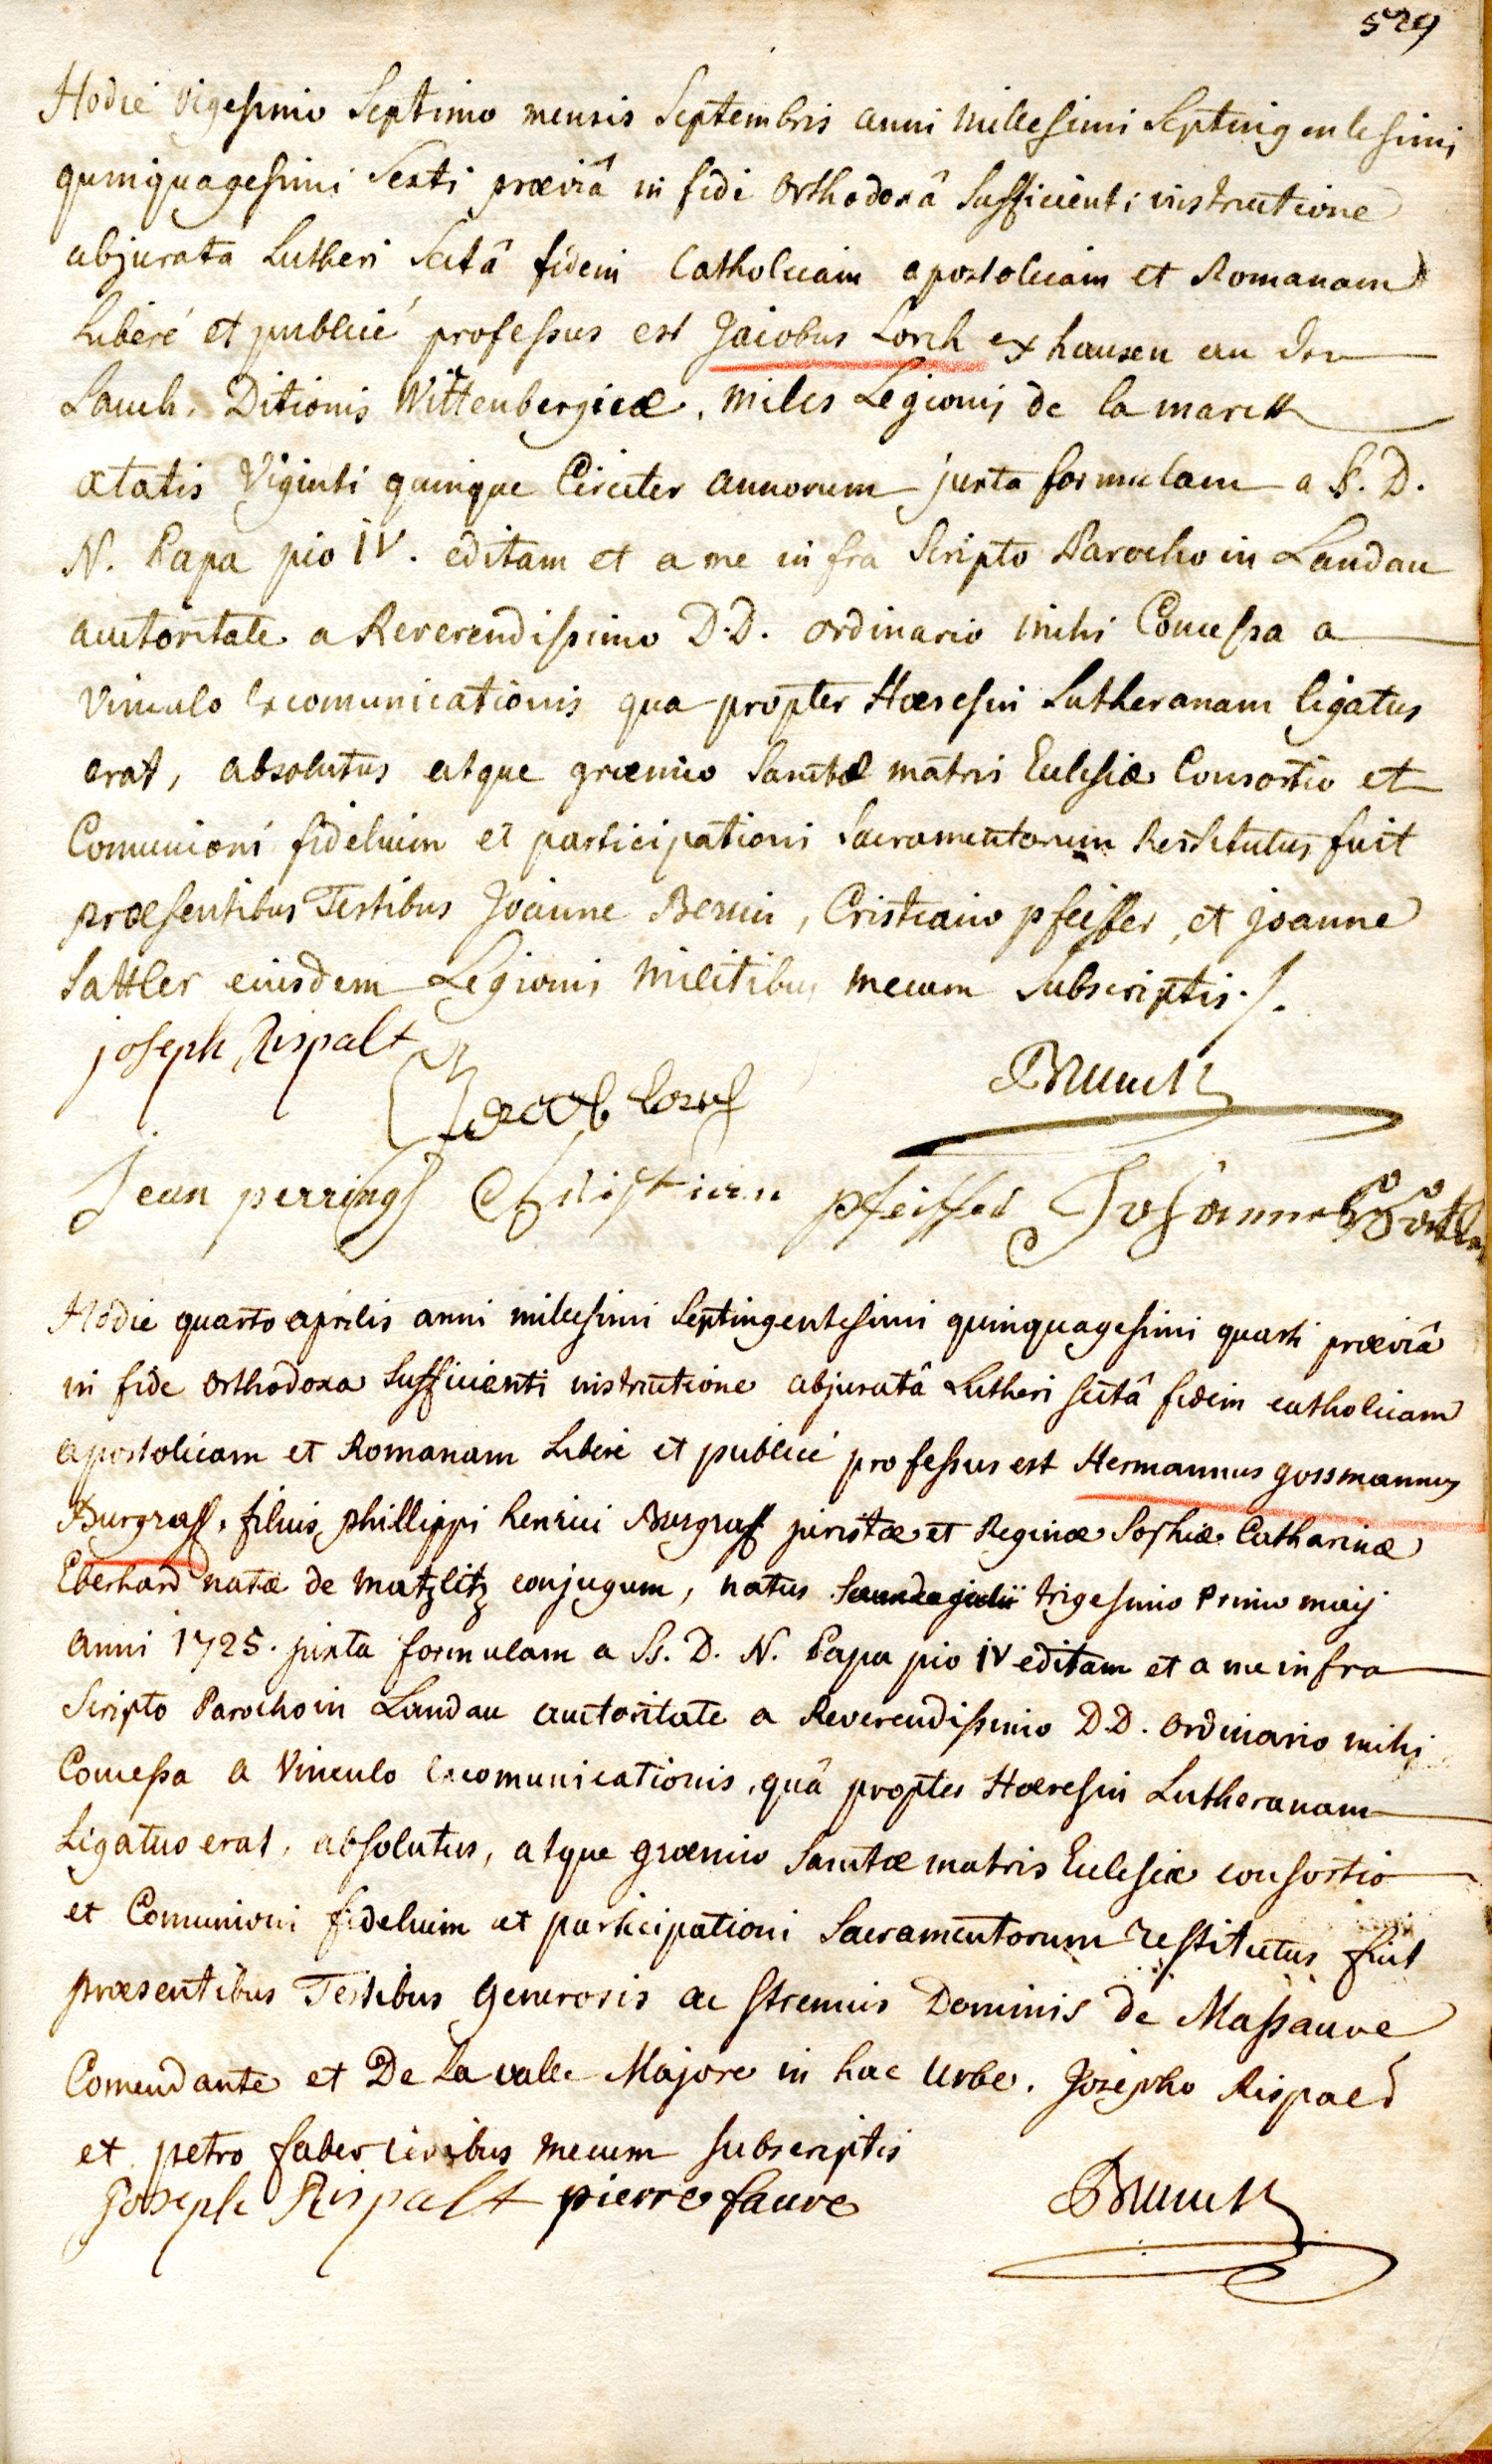 529
Hodie vigesimo Septimo mensis Septembris anni millesimi Septingentesimi
quinquagesimi Sexti præviâ in fide Orthodoxâ Sufficienti instructione
abjurata Lutheri Sectâ fidem Catholicam apostolicam et Romanam
Liberé et publicé professus est Jacobus Lorch ex hausen an der
Lauch. Ditionis Wittenbergicæ, miles Legionis de la marck
ætatis Viginti quinque Circiter annorum juxta formulam a S. D.
N. Papa pio IV. editam et a me infra Scripto Parocho in Landau
auctoritate a Reverendissimo D.D. ordinario mihi Concessa a
Vinculo Excomunicationis qua propter Hæresin Lutheranam ligatus
erat, absolutus atque græmio Sanctæ matris Eclesiæ Consortio et
Comunioni fidelium et participationi Sacramentorum Restitutus fuit
præsentibus Testibus Joanne Perrin, Cristiano pfeiffer, et joanne
Sattler eiusdem Legionis Militibus mecum Subscriptis ./.
joseph Rispalt
Jacob Lorch
Brunck
Jean perring Christian pfeiffer Johannes Sattler
Hodie quarto aprilis anni millesimi Septingentesimi quinquagesimi quarti præviâ
in fide orthodoxa Sufficienti instructione abjuratâ Lutheri sectâ fidem catholicam
apostolicam et Romanam Liberé et publicé professus est Hermannus gossmannus
Burgraff, filius phillippi henrici Burgraff juristæ et Reginæ Sophiæ Catharinæ
Eberhard natæ de matzlitz conjugum, natus trigesimo Primo maij
anni 1725. juxta formulam a Ss. D. N. Papa pio IV editam et a me infra
Scripto Parocho in Landau auctoritate a Reverendissimo D.D. ordinario mihi
Concessa a Vinculo Excomunicationis, quâ propter Hæresin Lutheranam
Ligatus erat, absolutus, atque græmio Sanctæ matris Eclesiæ consortio
et Comunioni fidelium et participationi Sacramentorum restitutus fuit
præsentibus Testibus Generosis ac strenuis Dominis de Massauve
Comendante et De Lavalle Majore in hac Urbe. Josepho Rispald
et petro faber civibus mecum subscriptis
Joseph Rispalt pierre fauve
Brunck